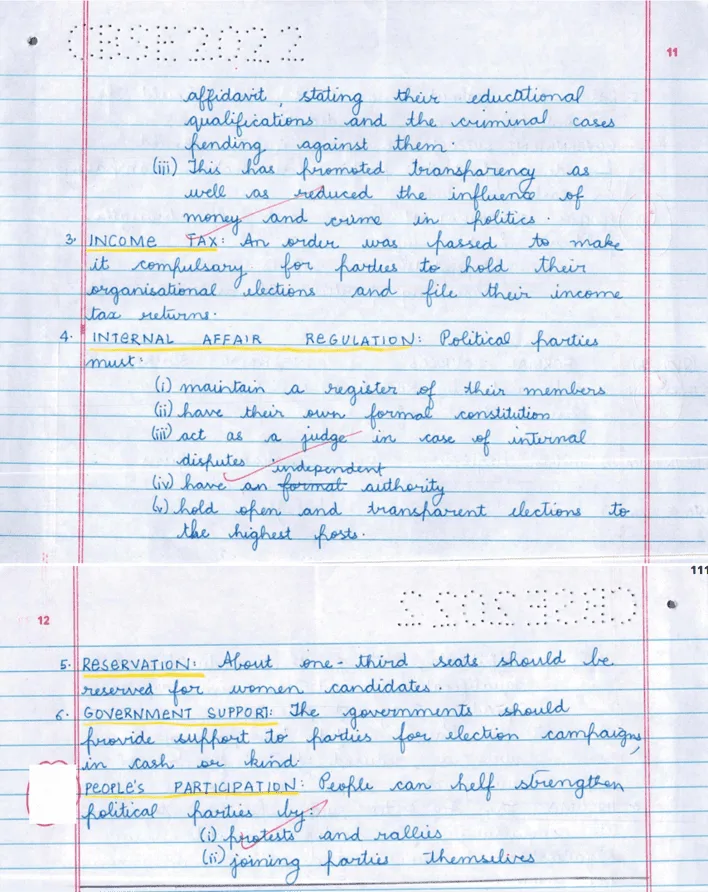 CBSE2022
11
affidavit, stating their educational
qualifications and the criminal cases
pending against them.
(iii) This has promoted transparency as
well as reduced the influence of
money and crime in politics.
3. INCOME TAX: An order was passed to make
it compulsary for parties to hold their
organisational elections and file their income
tax returns.
4. INTERNAL AFFAIR REGULATION: Political parties
must:
(i) maintain a register of their members
(ii) have their own formal constitution
(iii) act as a judge in case of internal
disputes
independent
(iv) have an formal authority
(v) hold open and transparent elections to
the highest posts.
111
12
CBSE2022
5. RESERVATION: About one-third seats should be
reserved for women candidates.
6. GOVERNMENT SUPPORT: The governments should
provide support to parties for election campaigns,
in cash or kind.
PEOPLE'S PARTICIPATION: People can help strengthen
political parties by:
(i) protests and rallies
(ii) joining parties themselves